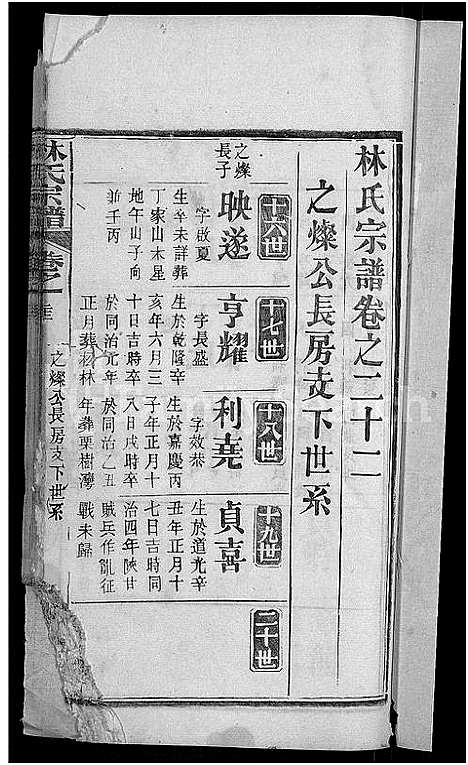 林氏宗譜卷之二十二
之燦公長房支下世系
十六世
十七世
十八世
十九世
二十世
之燦長子
映遂
字啟夏
生辛未詳葬
丁家山木星
地午山子向
並壬丙
亨耀
字長盛
生於乾隆辛
亥年六月三
十日吉時卒
於同治元年
正月葬楊林
利堯
字效恭
生於嘉慶丙
子年正月十
八日戌時卒
於同治乙丑
年葬栗樹灣
貞喜
生於道光辛
丑年正月十
七日吉時同
治四年陝甘
賊兵作亂征
戰未歸
林氏宗譜
卷之
之燦公長房支下世系